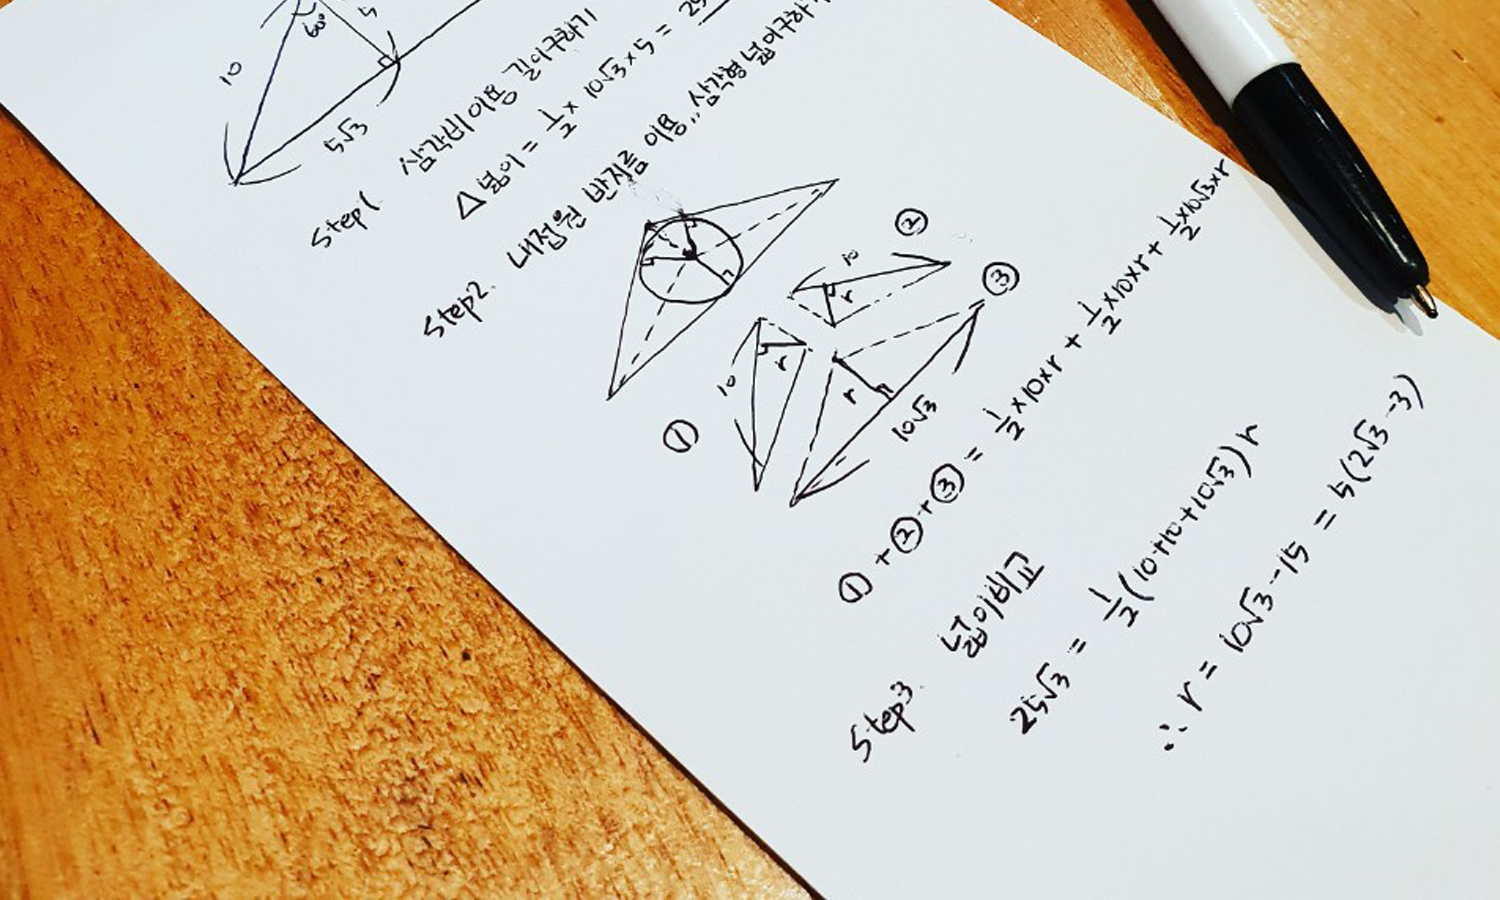 10
60°
5
5√3
Step1. 삼각비 이용 길이구하기
△넓이 = 1/2 × 10√3 × 5 =
Step2. 내접원 반지름 이용, 삼각형 넓이구하기
②
10
r
③
10
r
r
10√3
①
① + ② + ③ = 1/2×10×r + 1/2×10×r + 1/2×10√3×r
Step3. 넓이비교
25√3 = 1/2(10+10+10√3)r
∴ r = 10√3-15 = 5(2√3-3)